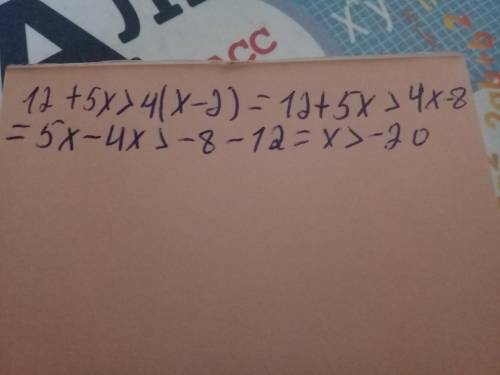 АЛГ
СС
xy
12 + 5x > 4(x - 2) = 12 + 5x > 4x - 8
= 5x - 4x > -8 - 12 = x > -20